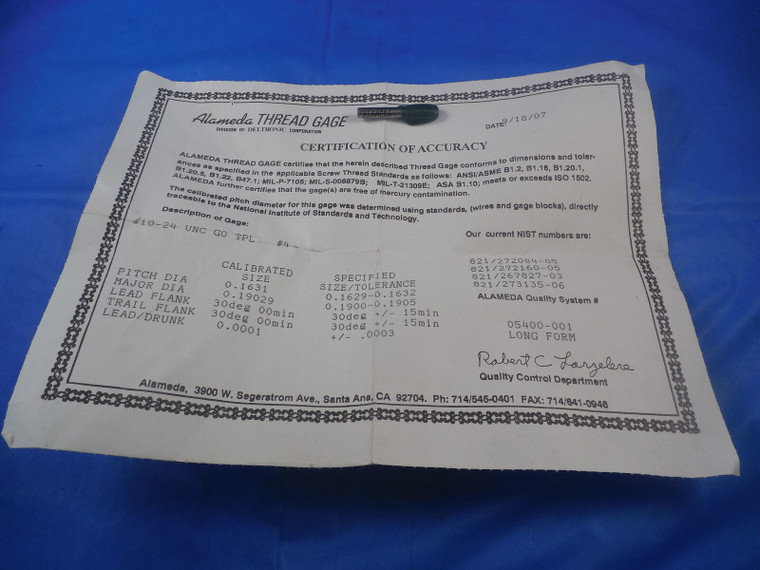 Alameda THREAD GAGE
DIVISION OF DELTRONIC CORPORATION
DATE 9/18/07
CERTIFICATION OF ACCURACY
ALAMEDA THREAD GAGE certifies that the herein described Thread Gage conforms to dimensions and toler-
ances as specified in the applicable Screw Thread Standards as follows: ANSI/ASME B1.2, B1.16, B1.20.1,
B1.20.5, B1.22, B47.1; MIL-P-7105; MIL-S-008879B; MIL-T-21309E; ASA B1.10; meets or exceeds ISO 1502.
ALAMEDA further certifies that the gage(s) are free of mercury contamination.
The calibrated pitch diameter for this gage was determined using standards, (wires and gage blocks), directly
traceable to the National Institute of Standards and Technology.
Description of Gage:
#10-24 UNC GO TPL #4
Our current NIST numbers are:
821/272084-05
821/272160-05
821/267827-03
821/273135-06
CALIBRATED SIZE
SPECIFIED SIZE/TOLERANCE
PITCH DIA 0.1631 0.1629-0.1632
MAJOR DIA 0.19029 0.1900-0.1905
LEAD FLANK 30deg 00min 30deg +/- 15min
TRAIL FLANK 30deg 00min 30deg +/- 15min
LEAD/DRUNK 0.0001 +/- .0003
ALAMEDA Quality System #
05400-001
LONG FORM
Robert C Larzelere
Quality Control Department
Alameda, 3900 W. Segerstrom Ave., Santa Ana, CA 92704. Ph: 714/545-0401 FAX: 714/641-0946